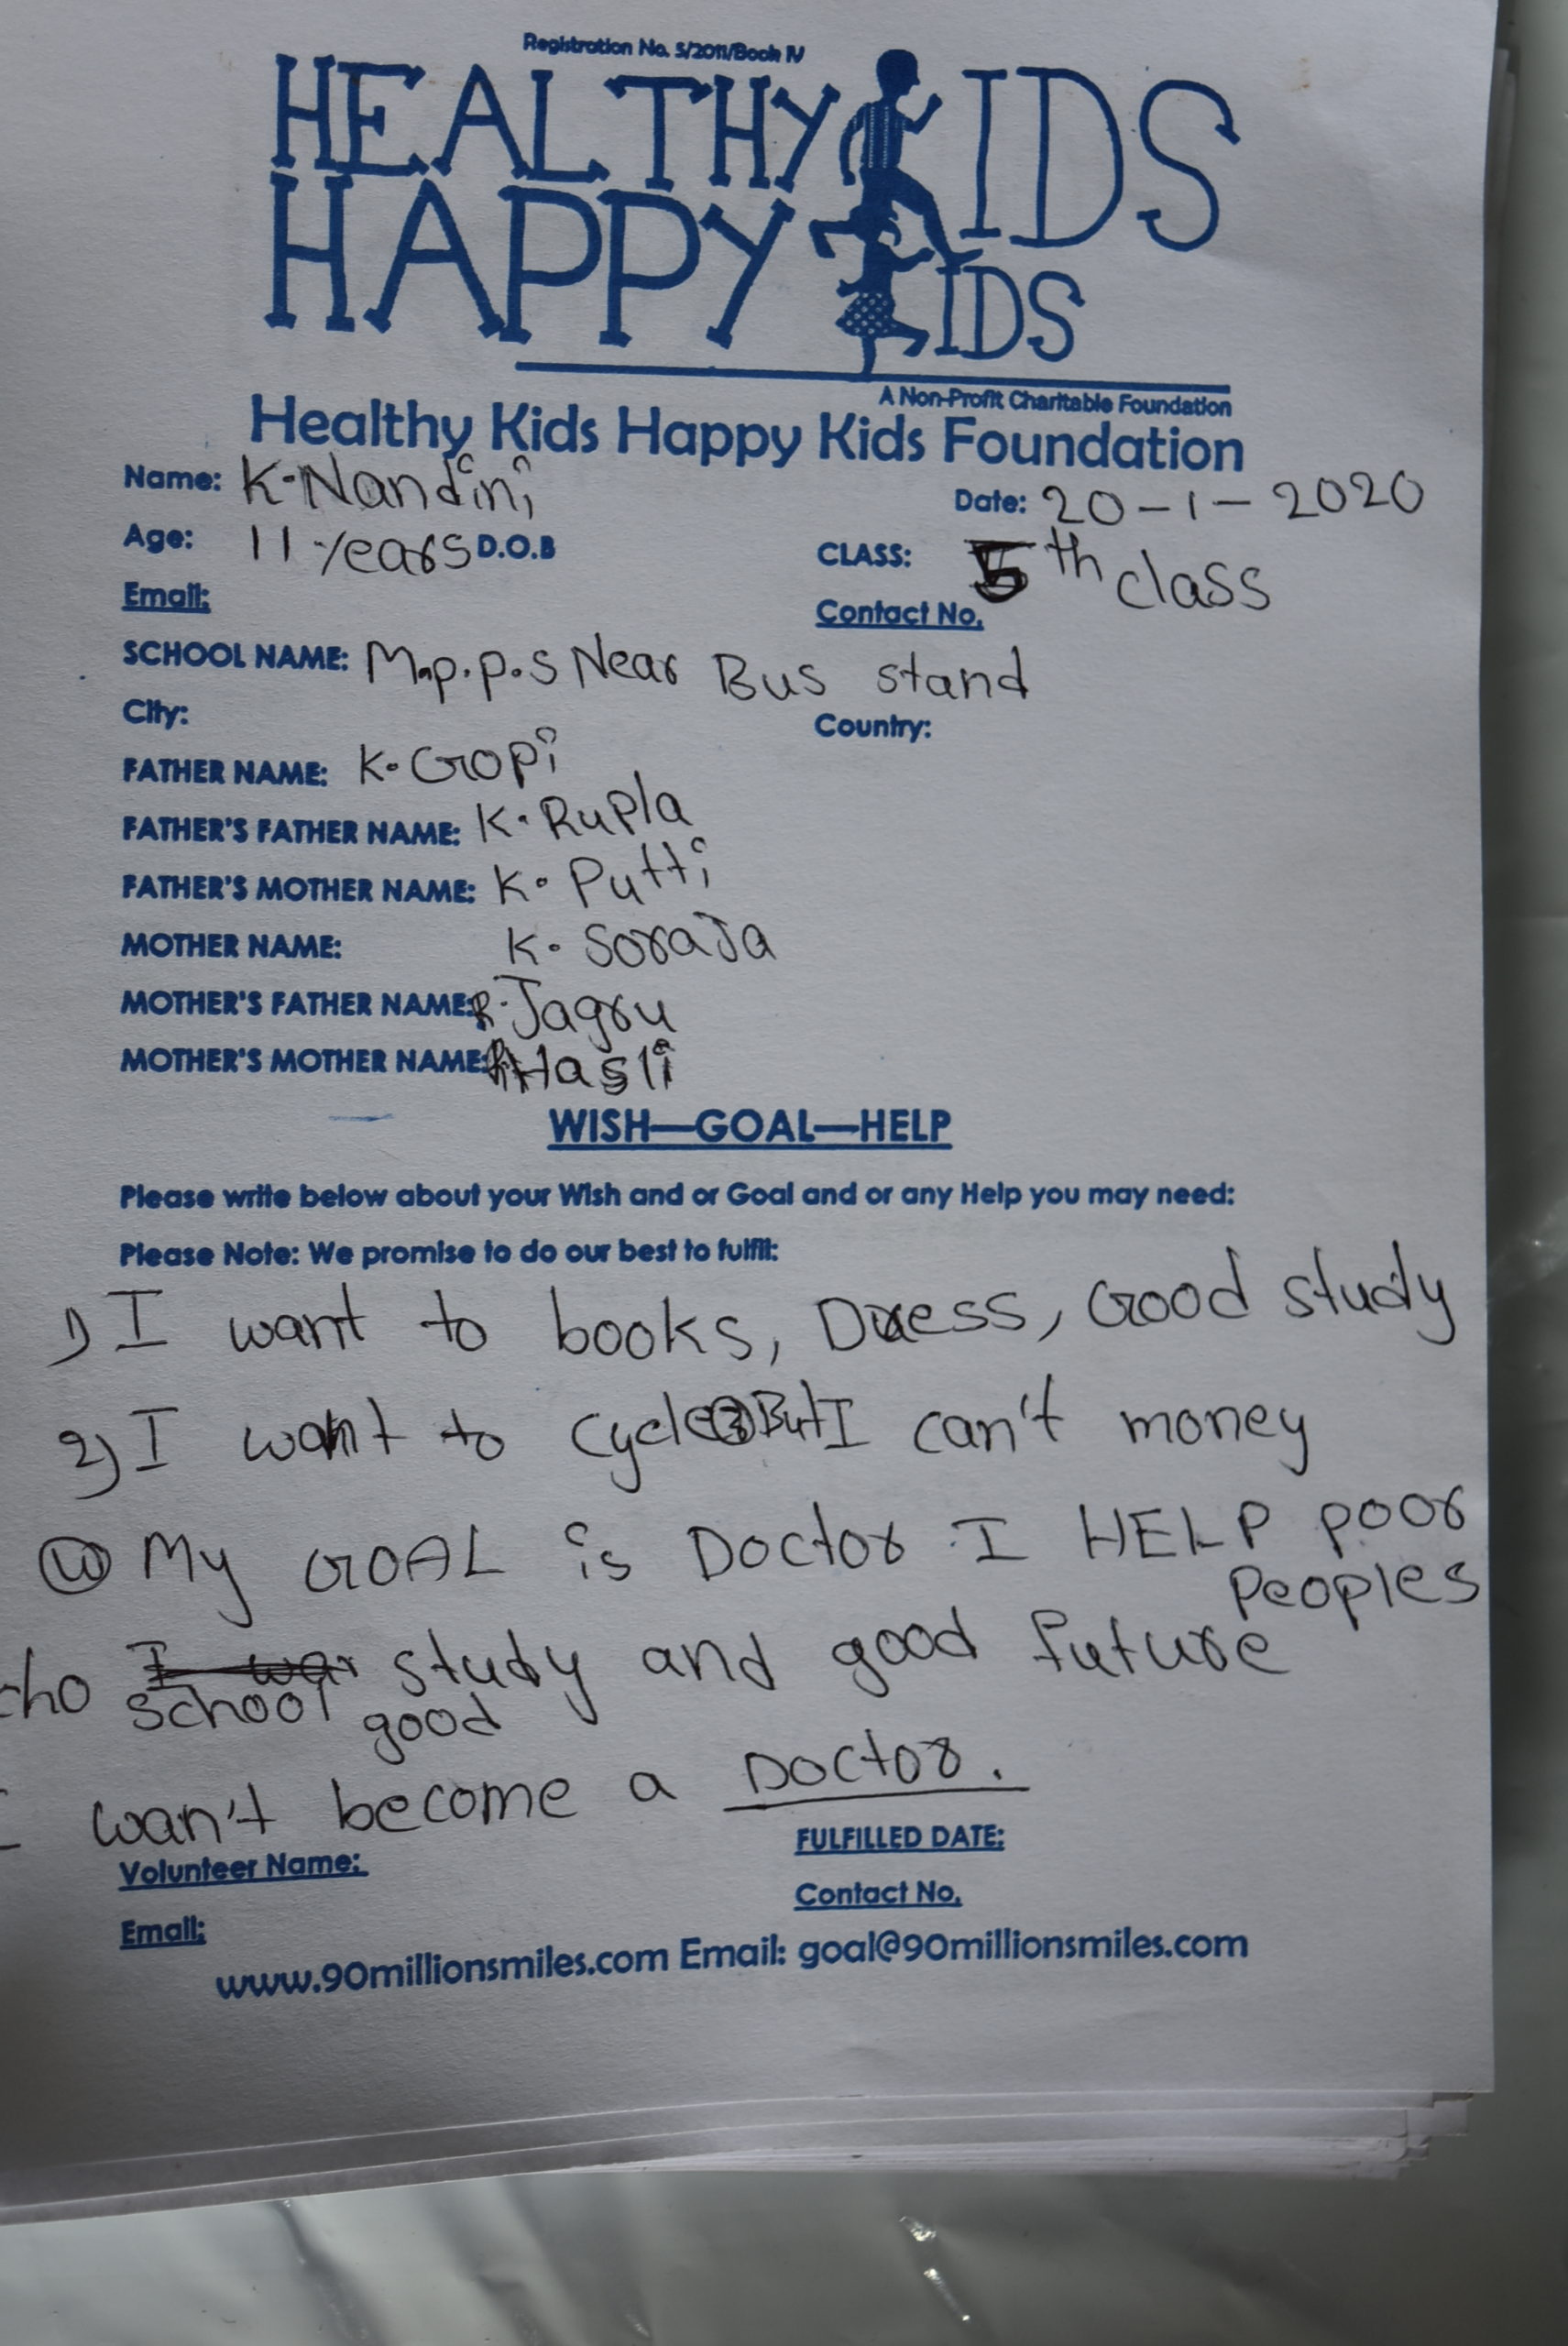 Registration No. 5/2011/Book IV
HEALTHY KIDS
HAPPY KIDS
A Non-Profit Charitable Foundation
Healthy Kids Happy Kids Foundation
Name: K. Nandini
Date: 20-1-2020
Age: 11 years D.O.B
CLASS: 5th class
Email:
Contact No.
SCHOOL NAME: M.p.p.s Near Bus stand
City:
Country:
FATHER NAME: K. Gopi
FATHER'S FATHER NAME: K. Rupla
FATHER'S MOTHER NAME: K. Putti
MOTHER NAME: K. Soraja
MOTHER'S FATHER NAME: R. Jagru
MOTHER'S MOTHER NAME: Hasli
WISH—GOAL—HELP
Please write below about your Wish and or Goal and or any Help you may need:
Please Note: We promise to do our best to fulfil:
1) I want to books, Dress, Good study
2) I want to cycle But I can't money
My GOAL is Doctor I HELP poor
Peoples
study and good future
school good
wan't become a Doctor.
Volunteer Name:
FULFILLED DATE:
Contact No.
Email:
www.90millionsmiles.com Email: goal@90millionsmiles.com